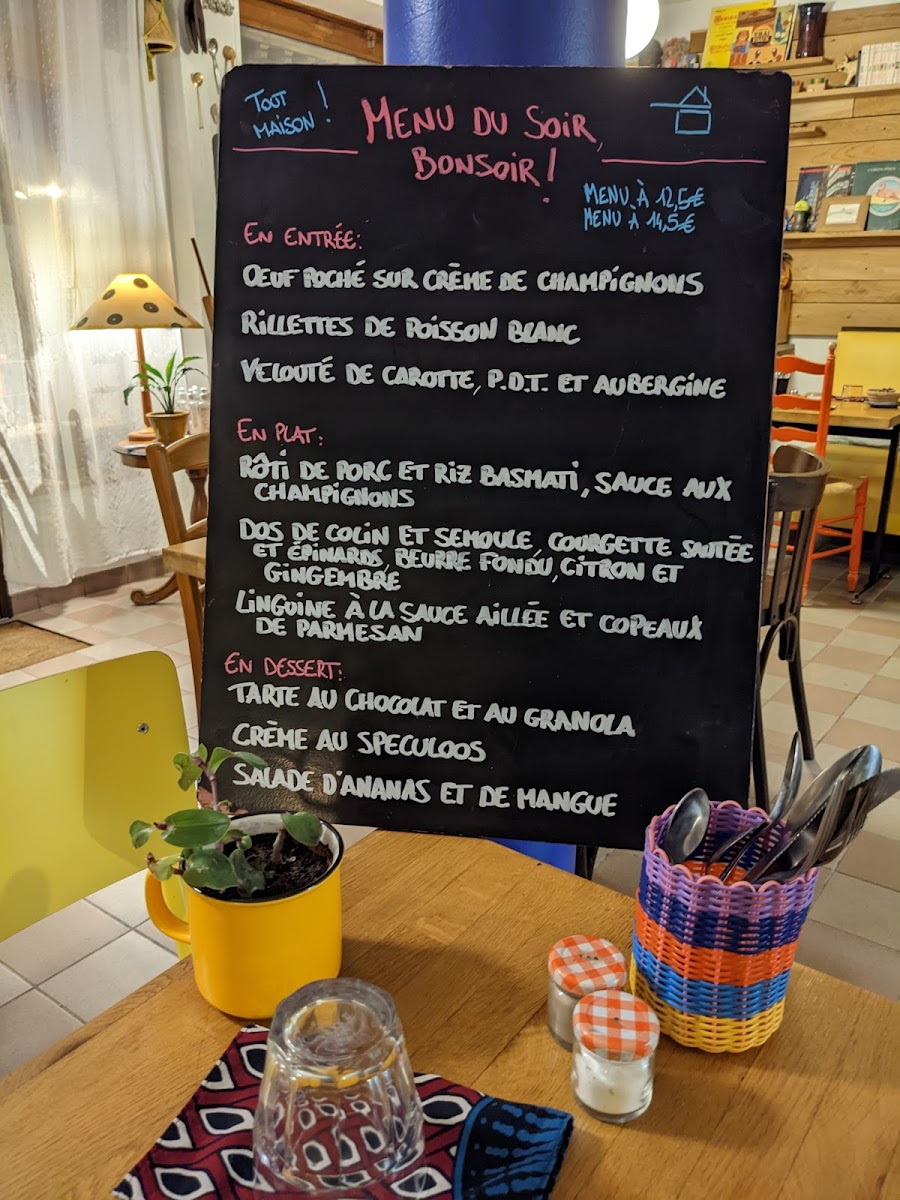 TOOT
MAISON !
MENU DU SOIR,
BONSOIR !
MENU À 12,5€
MENU À 14,5€
EN ENTRÉE:
OEUF POCHÉ SUR CRÈME DE CHAMPIGNONS
RILLETTES DE POISSON BLANC
VELOUTÉ DE CAROTTE, P.D.T. ET AUBERGINE
EN PLAT:
RÔTI DE PORC ET RIZ BASMATI, SAUCE AUX
CHAMPIGNONS
DOS DE COLIN ET SEMOULE, COURGETTE SAUTÉE
ET ÉPINARDS, BEURRE FONDU, CITRON ET
GINGEMBRE
LINGUINE À LA SAUCE AILLÉE ET COPEAUX
DE PARMESAN
EN DESSERT:
TARTE AU CHOCOLAT ET AU GRANOLA
CRÈME AU SPECULOOS
SALADE D'ANANAS ET DE MANGUE